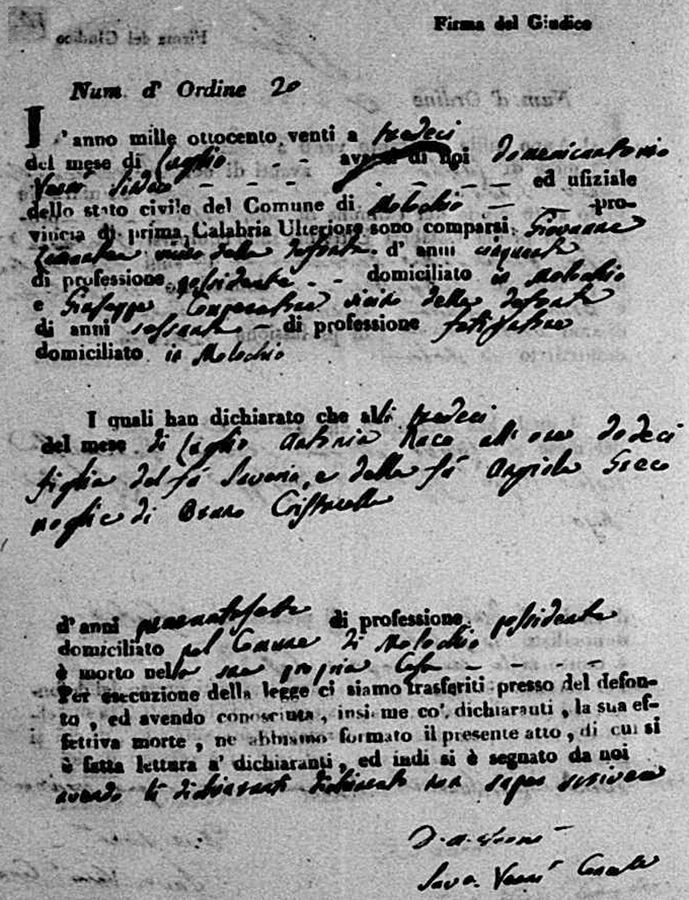 Firma del Giudice
Num. d' Ordine 20
L'anno mille ottocento venti a tredeci
del mese di Luglio - - avanti di noi Domenicantonio
- - - - - - ed ufiziale
dello stato civile del Comune di Molochio - - pro-
vincia di prima Calabria Ulteriore sono comparsi Giovanne
vicino della defonta d' anni cinquanta
di professione possidente - - domiciliato in Molochio
e Giuseppe vicino della defonta
di anni sessanta - di professione
domiciliato in Molochio
I quali han dichiarato che alli tredeci
del mese di Luglio Antonia Race all' ore dodeci
figlia del fù Saverio, e della fù Angiola Greco
moglie di Bruno
d'anni di professione possidente
domiciliato nel Comune di Molochio
è morto nella sua propria Casa - - - -
Per esecuzione della legge ci siamo trasferiti presso del defon-
to, ed avendo conosciuta, insieme co' dichiaranti, la sua ef-
fettiva morte, ne abbiamo formato il presente atto, di cui si
è fatta lettura a' dichiaranti, ed indi si è segnato da noi
avendo li dichiaranti dichiarato non saper scrivere